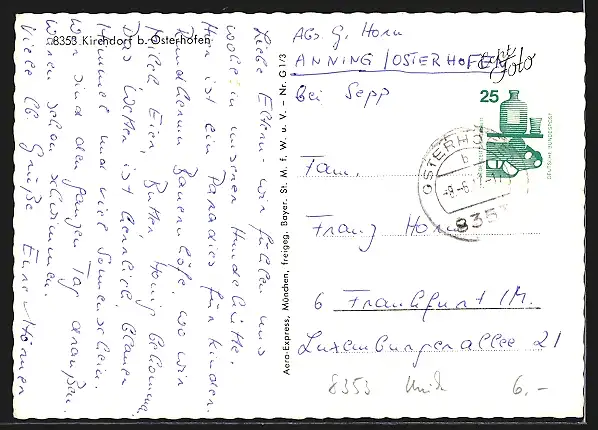 8353 Kirchdorf b. Osterhofen
Liebe Eltern - wir fühlen uns
wohl in unserer Hundehütte.
Hier ist ein Paradies für Kinder.
Rundherum Bauernhöfe wo wir
Milch, Eier, Butter, Honig bekommen.
Das Wetter ist herrlich blauer
Himmel und viel Sonnenschein.
Wir sind den ganzen Tag draußen.
Waren schon schwimmen.
Viele lb Grüße Eure Hörner
Aero-Express, München, freigeg. Bayer. St. M. f. W. u. V. - Nr. G 1/3
Abs. G. Horn
ANNING / OSTERHOFEN
bei Sepp
Echt
Foto
25
DEUTSCHE BUNDESPOST
OSTERHOF
b
-8.-6.7
835
Fam.
Franz Horn
6 Frankfurt / M.
Luxemburgerallee 21
8353
6.-